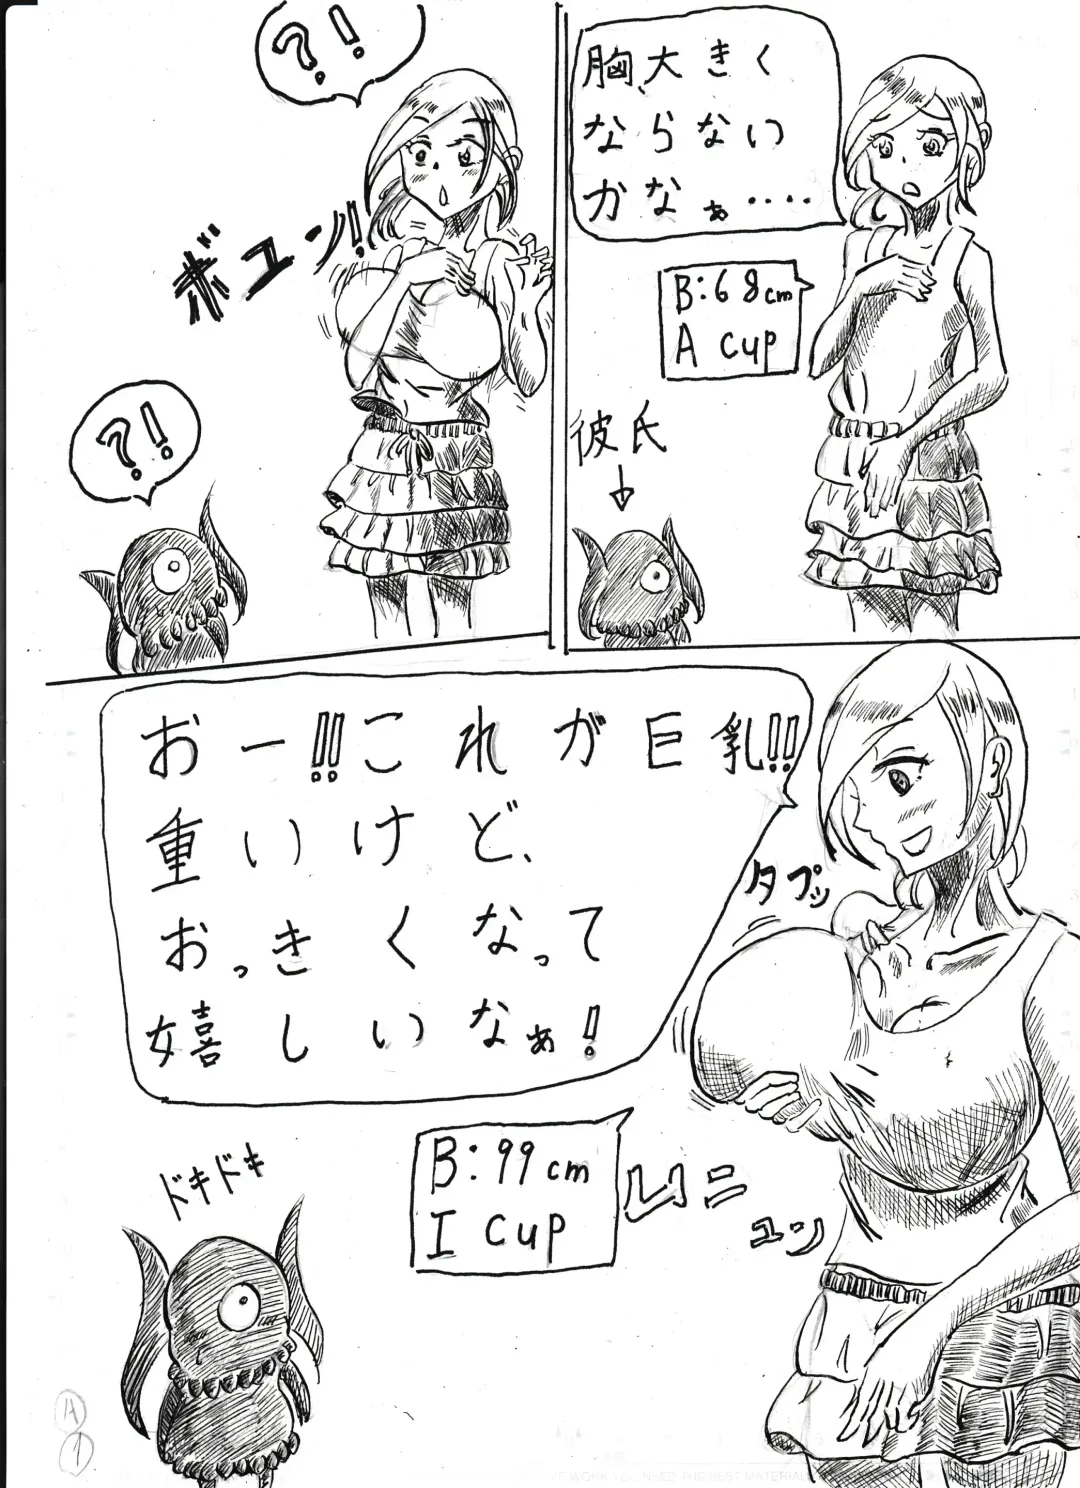 胸、大きく
ならない
かなぁ‥‥
B:68cm
A cup
彼氏
↓
?!
ボユン!!
?!
おー!!これが巨乳!!
重いけど、
おっきくなって
嬉しいなぁ!
タプッ
B:99cm
I cup
ムニ
ユン
ドキドキ
A
1